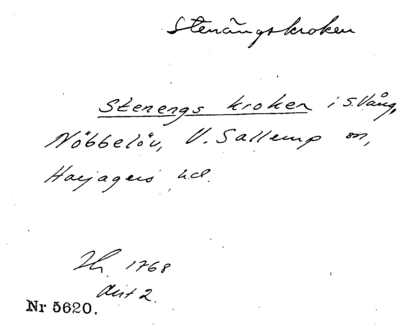 Stenängskroken
Sterengs kroken i S. Vång,
Nöbbelöv, V. Sallerup sn,
Harjagers hd.
Zh. 1768
Akt 2.
Nr 5620.